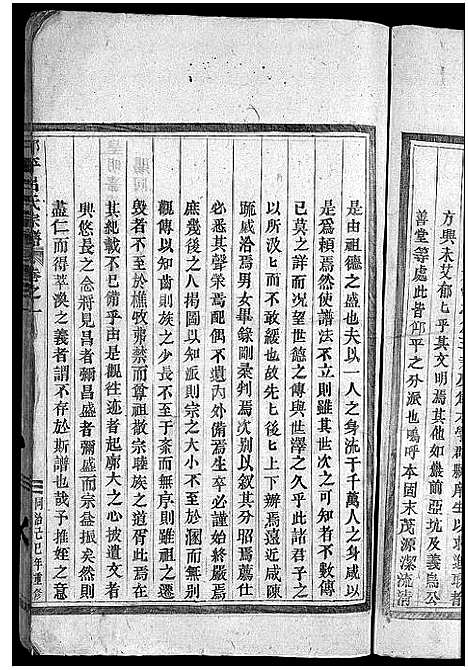 方興未艾郁匕乎其文明焉其他如盤前亞坑及義烏公
善堂等處此皆邻平之分派也嗚呼本固末茂源潔流清
是由祖德之盛也夫以一人之身流千千萬人之身咸以
是為賴焉然使譜法不立則雖其世次之可知者不數傳
已莫之詳而况望世德之傳與世澤之久乎此諸君子之
以所汲匕而不敢緩也故先匕後匕上下辨焉遠近咸陳
疏戚洽焉男女畢錄剛柔判焉沈別以叙其分昭焉薦仕
必悉其聲榮焉配偶不遺內外備焉生卒必謹始終嚴焉
庶幾後之人揭圖以知派則宗之大小不至於溷而無別
觀傳以知齒則族之少長不至于紊而無序則雖祖之遷
毀者不至於樵牧弗禁而尊祖敬宗睦族之道胥此焉在
其紀載不已備乎由是觀往迹者起廓大之心披遺文者
興悠長之念將見昌者彌昌盛者彌盛而宗益振矣然則
盡仁而得萃渙之義者謂不存於斯譜也哉予推姪之意
呂氏宗譜 卷之一
同治己巳年重修